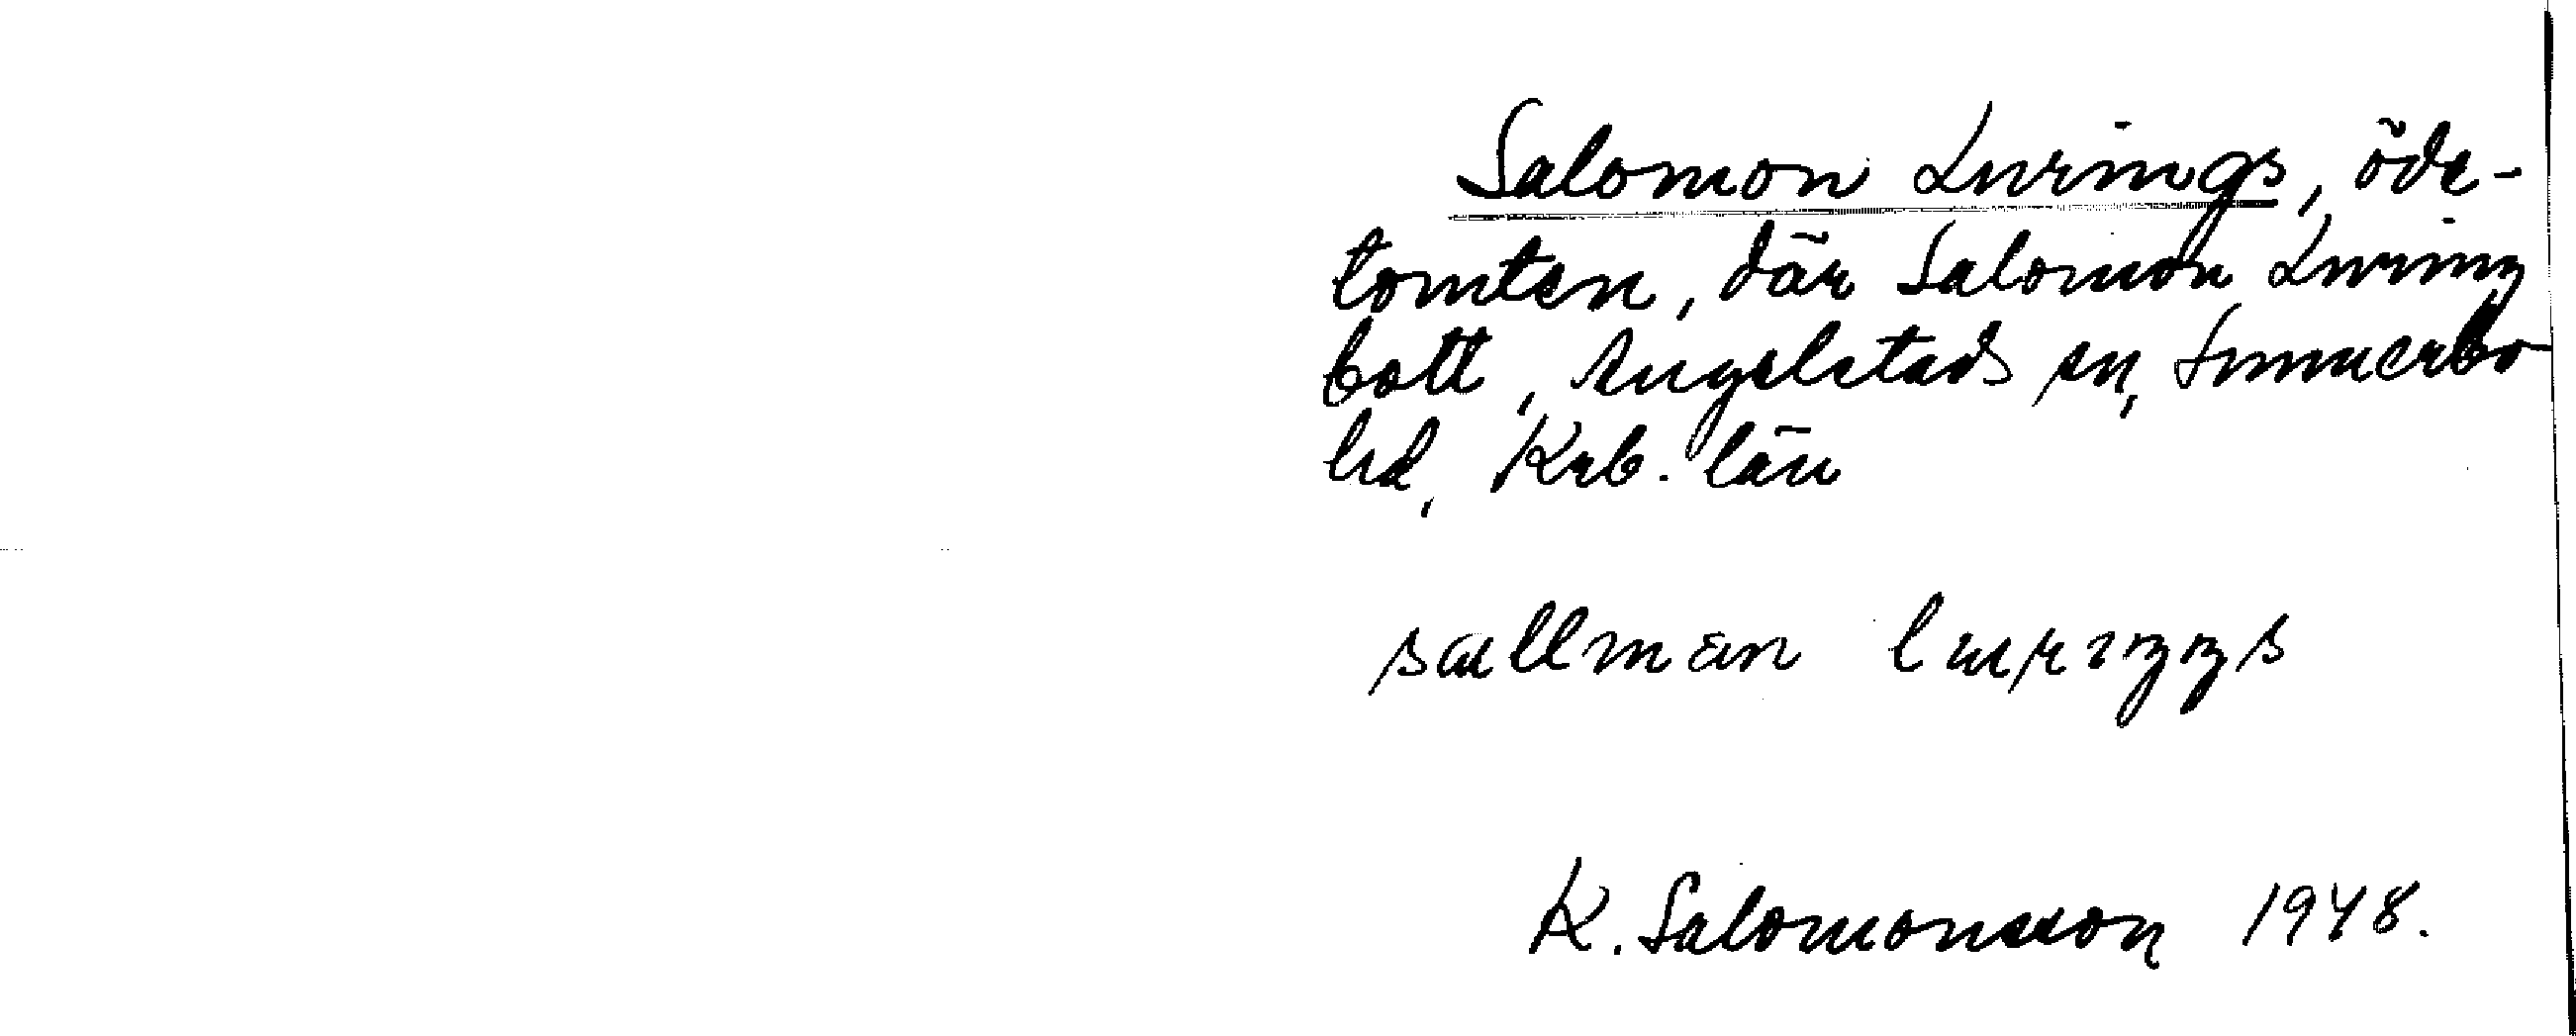 Salomon Lurings, öde-
tomten, där Salomon Luring
bott, Angelstads sn, Sunnerbo
hd, Krb. län
sallman lurıŋŋs
K. Salomonsson 1948.